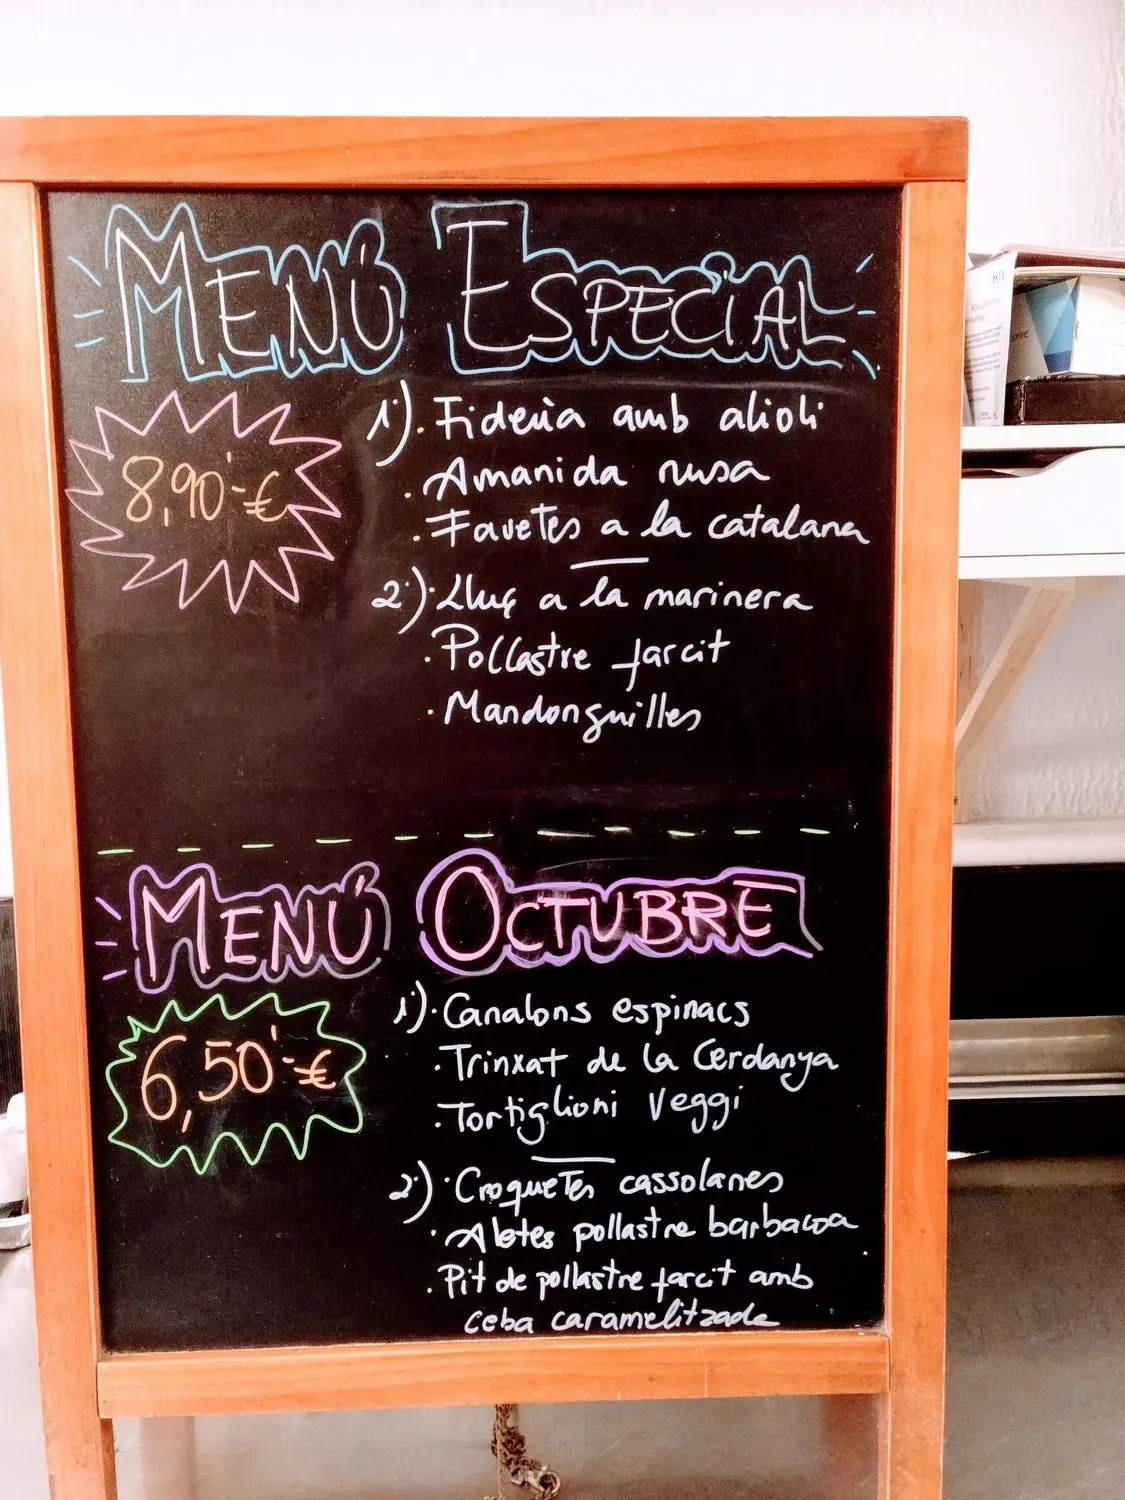 MENÚ ESPECIAL
8,90'-€
1) · Fideuà amb alioli
· Amanida rusa
· Favetes a la catalana
2) · Lluç a la marinera
· Pollastre farcit
· Mandonguilles
MENÚ OCTUBRE
6,50'-€
1) · Canalons espinacs
· Trinxat de la Cerdanya
· Tortiglioni Veggi
2) · Croquetes cassolanes
· Aletes pollastre barbacoa
· Pit de pollastre farcit amb
ceba caramelitzada